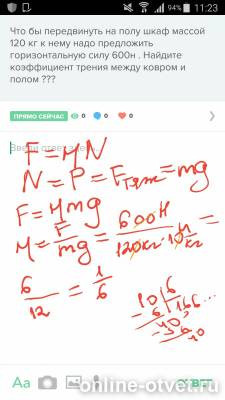 94% 11:23
Что бы передвинуть на полу шкаф массой
120 кг к нему надо предложить
горизонтальную силу 600н . Найдите
коэффициент трения между ковром и
полом ???
ПРЯМО СЕЙЧАС 0 0 0
Введи ответ здесь
F = мN
N = P = Fтяж = mg
F = мmg
м = F/mg = 600H/120кг·10H/кг =
6/12 = 1/6
10 6
6 166...
40
36
10
Aa ОТВЕТ
online-otvet.ru